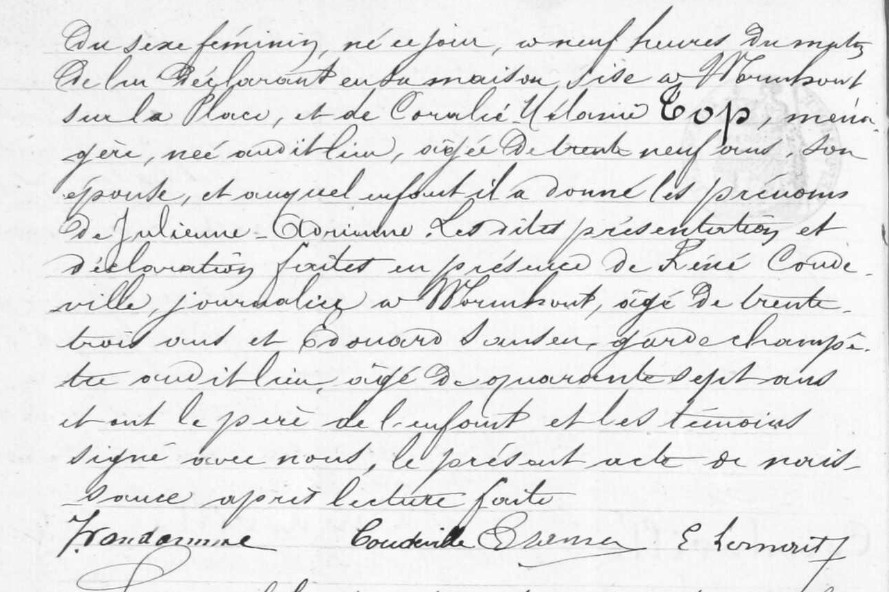 du sexe féminin, né ce jour, à neuf heures du matin
de lui déclarant en sa maison, sise à Wormhout
sur la Place, et de Coralie-Mélanie Top, ména-
gère, neé audit lieu, âgée de trente neuf ans, son
épouse, et auquel enfant il a donné les prénoms
de Julienne-Adrienne. Les dites présentation et
déclaration faites en présence de Réné Coude-
ville, journalier à Wormhout, âgé de trente-
trois ans et Edouard Sansen, garde champê-
tre audit lieu, âgé de quarante sept ans
et ont le père de l'enfant et les témoins
signé avec nous, le présent acte de nais-
sance après lecture faite
Vandamme Coudeville E